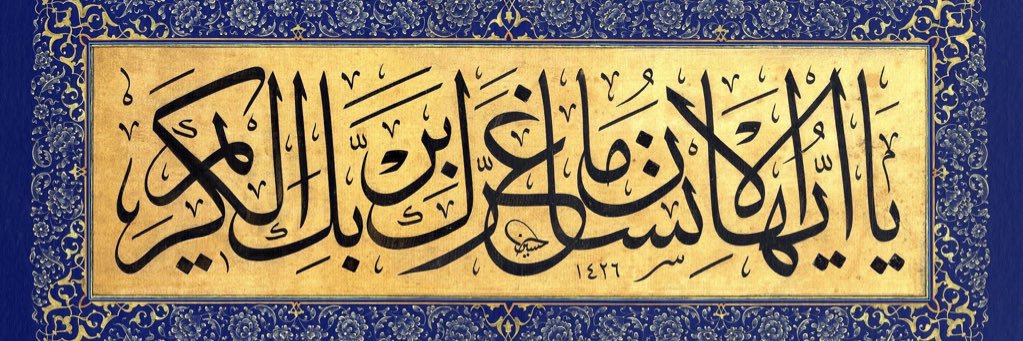 يَا أَيُّهَا الْإِنْسَانُ مَا غَرَّكَ بِرَبِّكَ الْكَرِيمِ
١٤٢٦